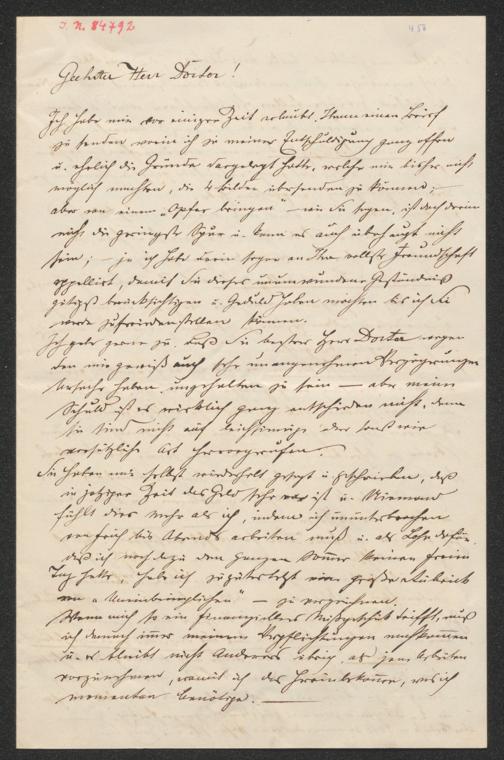 J. N. 84792
Geehrter Herr Doctor!
Ich habe mir vor einiger Zeit erlaubt, Ihnen einen Brief
zu senden worin ich zu meiner Entschuldigung ganz offen
u. ehrlich die Gründe dargelegt hatte, welche mir bisher nicht
möglich machten, die 4 Bilder übersenden zu können; –
aber von einem „Opfer bringen" – wie Sie sagen, ist doch darin
nicht die geringste Spur u. kann es auch überhaupt nicht
sein; – ja ich habe darin sogar an Ihre vollste Freundschaft
appellirt, damit Sie dieses unumwundene Geständniß
gütigst berücksichtigen u. Geduld haben möchten bis ich Sie
werde zufriedenstellen können.
Ich gebe gerne zu, daß Sie bester Herr Doctor wegen
den mir gewiß auch sehr unangenehmen Verzögerungen
Ursache haben, ungehalten zu sein – aber meine
Schuld ist es wirklich ganz entschieden nicht, denn
sie sind nicht auf leichsinnige oder sonst wie
vorsätzliche Art hervorgerufen.
Sie haben mir selbst wiederholt gesagt u. geschrieben, daß
in jetziger Zeit das Geld sehr rar ist u. Niemand
fühlt dies mehr als ich, indem ich ununterbrochen
von früh bis Abends arbeiten muß u. als Lohn dafür,
daß ich noch dazu den ganzen Sommer keinen freien
Tag hatte, habe ich zuguterletzt eine große Rubrik
von „Uneinbringlichen" – zu verzeichnen.
Wenn mich so ein finanzielles Mißgeschick trifft, muß
ich dennoch immer meinen Verpflichtungen nachkommen
u. es bleibt nichts Anderes übrig, als jene Arbeiten
vorzunehmen, womit ich das hereinbekomme, was ich
momentan benötige. –